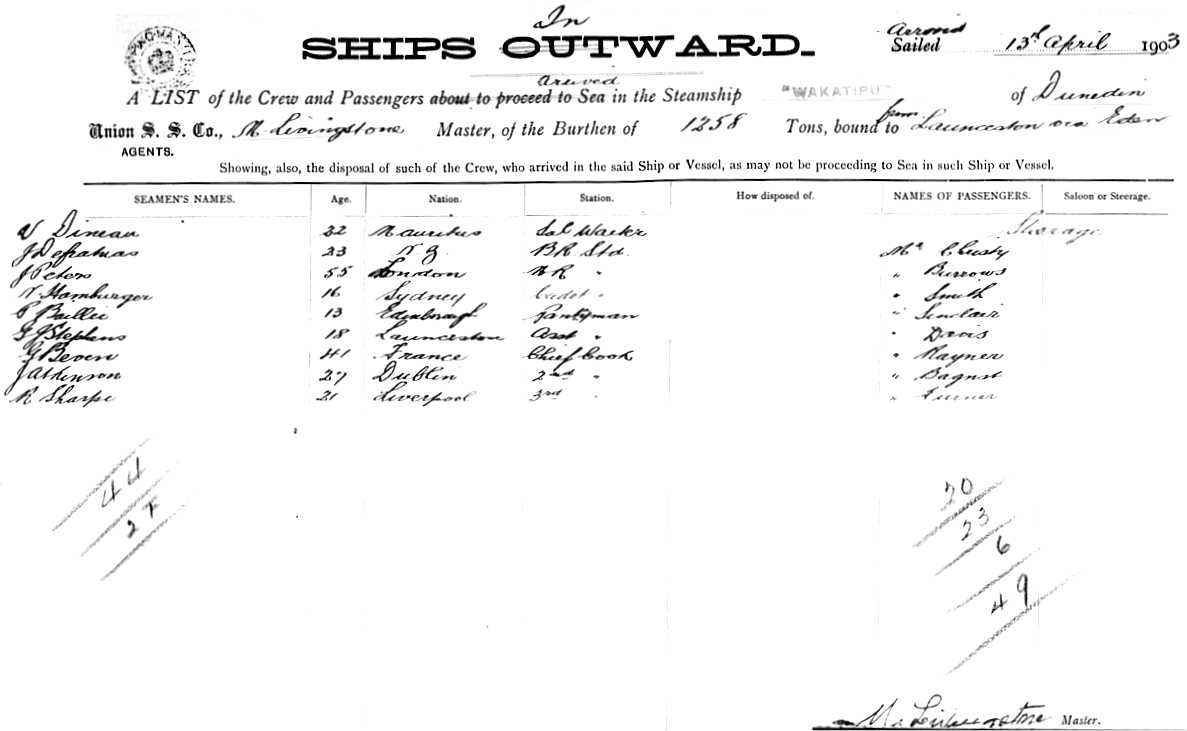 In
SHIPS OUTWARD.
Arrived
Sailed 13th April 1903
arrived
A LIST of the Crew and Passengers about to proceed to Sea in the Steamship "WAKATIPU" of Dunedin
from
Union S. S. Co., M. Livingstone Master, of the Burthen of 1258 Tons, bound to Launceston via Eden
AGENTS.
Showing, also, the disposal of such of the Crew, who arrived in the said Ship or Vessel, as may not be proceeding to Sea in such Ship or Vessel.
SEAMEN'S NAMES. Age. Nation. Station. How disposed of. NAMES OF PASSENGERS. Saloon or Steerage.
Steerage
V Dineau 22 Mauritius Sal Waiter
J 23 N Z. B R Std. Mr Chusty
J Peters 55 London " " Burrows
Hamburger 16 Sydney Cadet " " Smith
P Baillie 13 Edinborough Pantryman " Sinclair
G J Stephens 18 Launceston Asst " " Davis
G Beven 41 France Chief Cook " Rayner
J Atkinson 27 Dublin 2nd " " Bagnst
R Sharpe 21 Liverpool 3rd " " Turner
44
27
20
23
6
49
M. Livingstone Master.